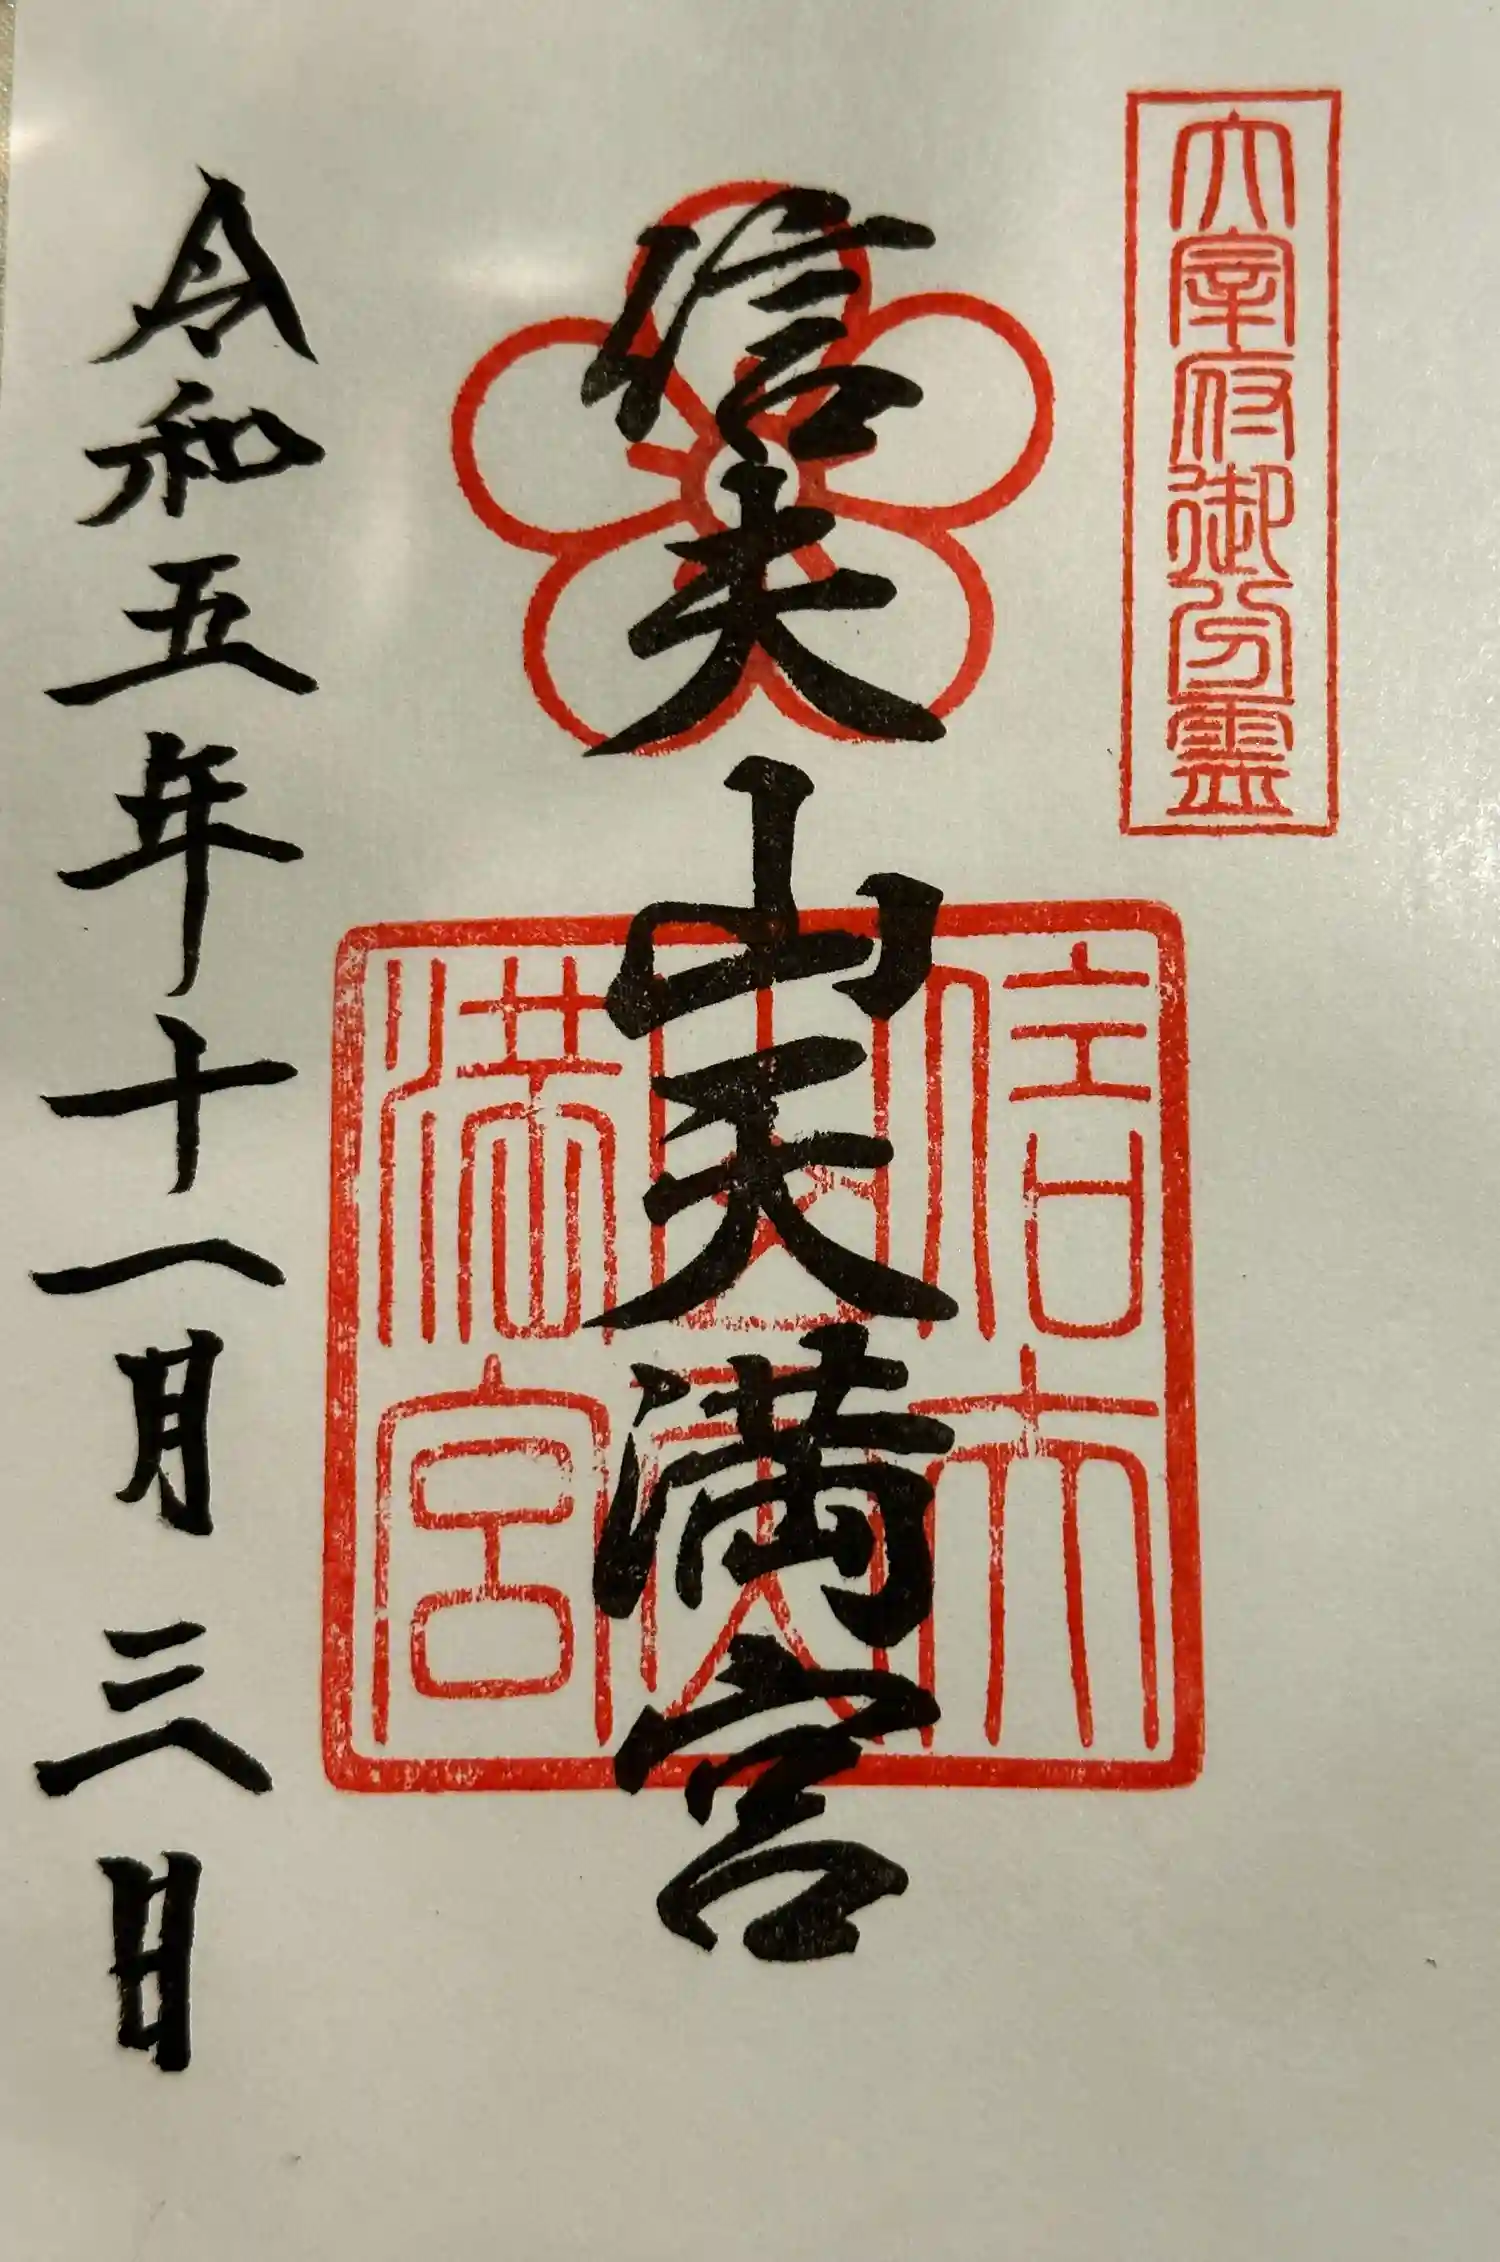 大宰府御分霊
信夫山天満宮
信夫山天満宮
令和五年十一月三日